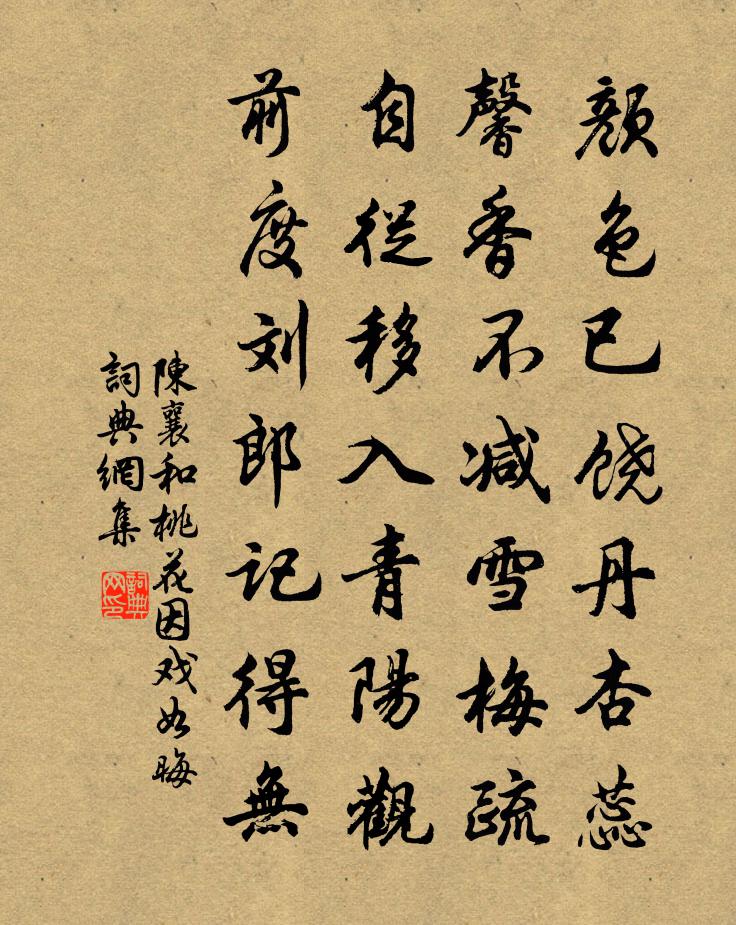 顏色已饶丹杏蕊
馨香不减雪梅疏
自從移入青陽觀
前度刘郎記得無
陳襄和桃花因戏如晦
詞典網集
詞典
网印